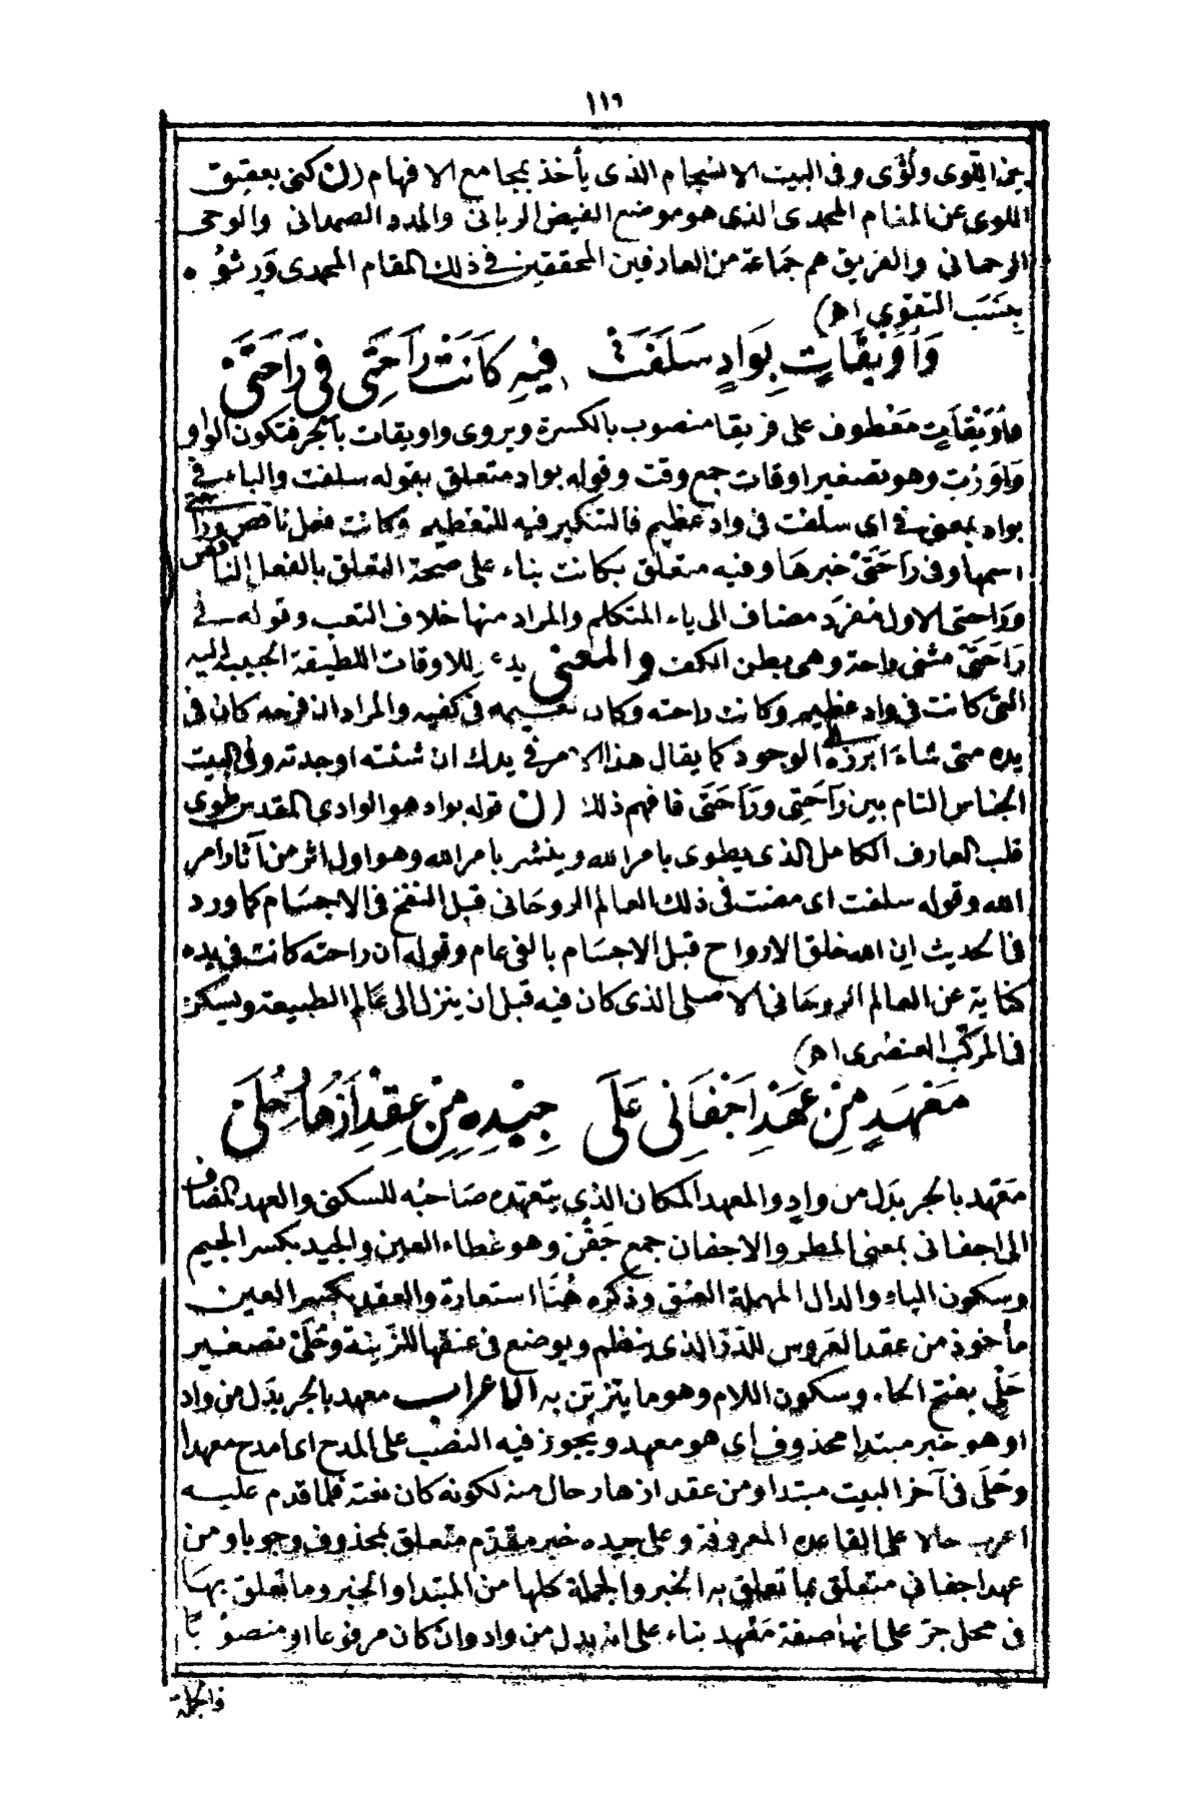 ١١٦
بين اللّوى ولُؤَى وفى البيت الانسجام الذى يأخذ بمجامع الافهام (ن) كنى بعقيق
اللوى عن المقام المحمدى الذى هو موضع الفيض الربانى والمدد الصمدانى والوحى
الرحمانى والفريق هم جَمَاعة من العارفين المحققين فى ذلك المقام المحمدى وَرِثوُه
بِنسَب التقوى (اﻫ)
وَاُوَيْقَاتٍ بِوَادٍ سَلَفَتْ فِيهِ كَانَتْ رَاحَتِى فِى رَاحَتَىْ
وأُوَيْقَاتٍ مَعْطوف على فريقا منصوب بالكسرة ويروى واويقات بالجر فتكون الواو
وَاوَ رُبّ وهو تصغير اوقات جمع وقت وقوله بواد متعلق بقوله سلفت والباء فى
بواد بمعنى فى اى سلفت فى وادٍ عظيم فالتنكير فيه للتعظيم وكانت فعل ناقص وراحتى
اسمها وفى راحَتَىْ خبرهَا وفيه متعلق بكانت بناء على صحة التعلق بالفعل الناقص
وراحتى الاول مُفْرَد مضاف الى ياء المتكلم والمراد منها خلاف التعب وقوله فى
رَاحَتَىّ مثنى راحة وهى بطن الكف والمعنى يدعو للاوقات اللطيفة الحبيبة اليه
التى كانت فى واد عظيم وكانت راحته وكان نعيمه فى كفيه والمراد ان فرحه كان فى
يده متى شاء ابرزه الى الوجود كما يقال هذا الامر فى يدك ان شئته اوجدته وفى البيت
الجناس التام بين رَاحَتِى ورَاحَتَى فافهم ذلك (ن) قوله بواد هو الوادى المقدس طوى
قلب العارف الكامل الذى يطوى بامر الله وينشر بامر الله وهو اول اثر من آثار امر
الله وقوله سلفت اى مضت فى ذلك العالم الروحَانى قبل النفخ فى الاجسَام كما ورد
فى الحديث ان الله خلق الارواح قبل الاجسَام بالفى عام وقوله ان راحته كانت فى يده
كناية عن العالم الروحَانى الاصلى الذى كان فيه قبل ان ينزل الى عَالم الطبيعة ويسكن
فى المركّب العنصُرى (اﻫ)
مَعْهَدٍ مِنْ عَهْدِ اَجْفَانِى عَلَى جِيْدِهِ مِنْ عِقْدِ اَزْهَارٍ حُلَىْ
مَعْهَد بالجر بَدَل من وادٍ والمعهد المكان الذى يتعهّده صَاحبُه للسكنى والعهد المضاف
الى اجفانى بمعنى المطر والاجفان جمع جَفْن وهو غطاء العين والجيد بكسر الجيم
وسكون الياء والدال المهملة العنق وذكره هُنَا استعارة والعقد بكسر العين
مأخوذ من عقد العَروس للدّرّ الذى ينظم ويوضع فى عنقها للزّينة وحُلَىْ تصغير
حَلْىٍ بفتح الحاء وسكون اللام وهو ما يتزيّن به الاعراب معهد بالجر بَدَل من واد
او هو خبر مبتدا محذوف اى هو معهد ويجوز فيه النصْب على المدح اى امدح معهدا
وحُلَى فى آخر البيت مبتدا ومن عقد ازهار حال منه لكونه كان نعته فلما قدم عليه
اعرب حالا على القاعده المعروفة وعلى جيده خبر مقدّم متعلق بمحذوف وجوبا ومن
عهد اجفانى متعلّق بما تعلق به الخبر والجملة كلها من المبتدا والخبر وما تعلق بهَا
فى محل جرّ على انها صفة مَعْهد بناء على انه بدل من واد وان كان مرفوعا او منصوبًا
فالجملة